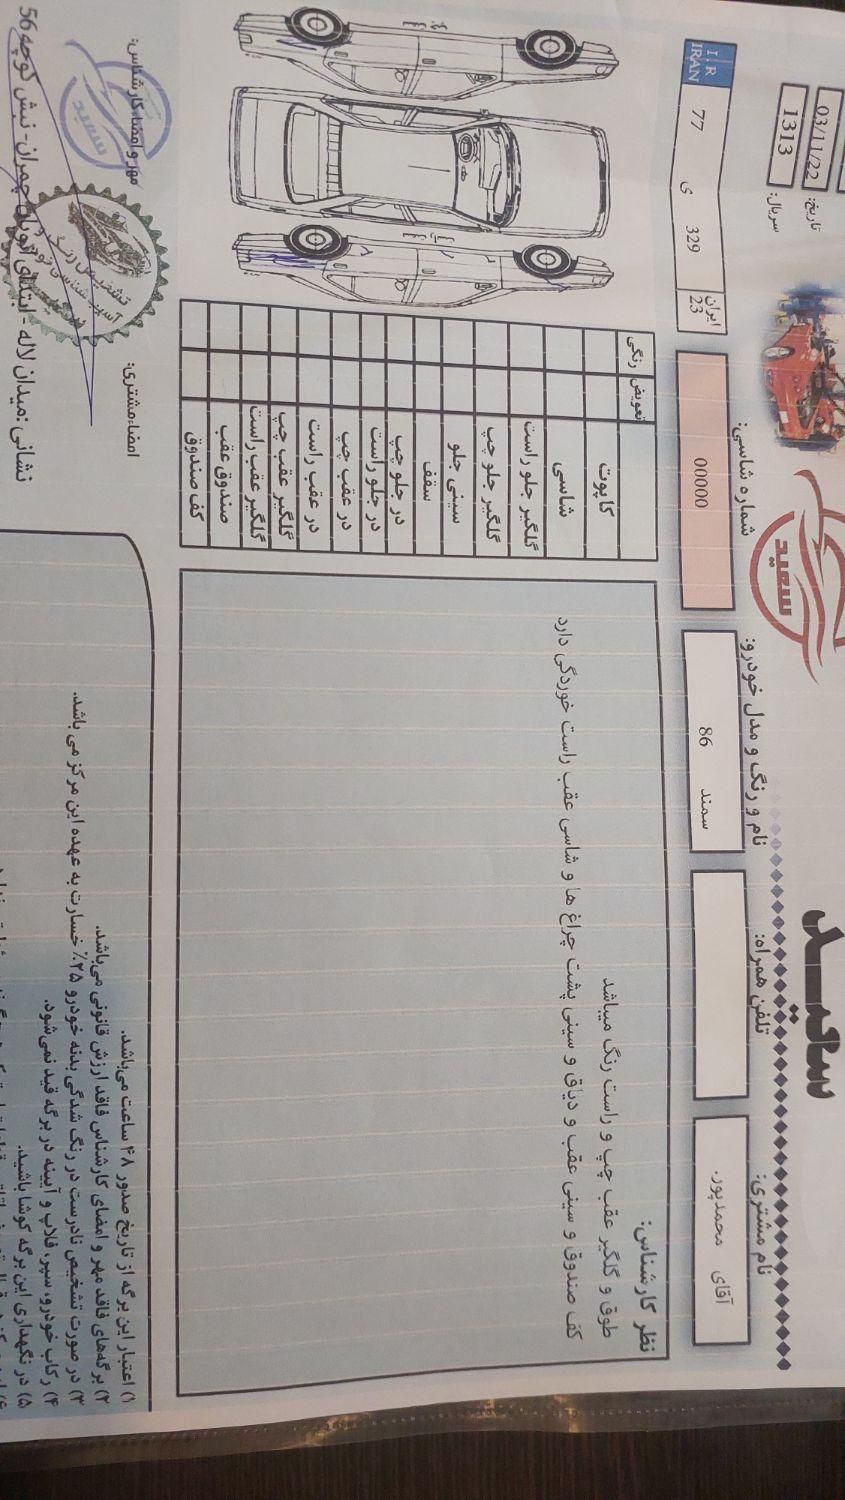 سعید
تاریخ: 03/11/22
سریال: 1313
نام مشتری:
آقای محمدپور.
تلفن همراه:
نام و رنگ و مدل خودرو:
سمند 86
شماره شاسی:
00000
I.R
IRAN
77 ی 329
ایران
23
سعید
نظر کارشناس:
طوق و گلگیر عقب چپ و راست رنگ میباشد
کف صندوق و سینی عقب و دیاق و سینی پشت چراغ ها و شاسی عقب راست خوردگی دارد
تعویض رنگی
کاپوت
شاسی
گلگیر جلو راست
گلگیر جلو چپ
سینی جلو
سقف
در جلو چپ
در جلو راست
در عقب چپ
در عقب راست
گلگیر عقب چپ
گلگیر عقب راست
صندوق عقب
کف صندوق
۱) اعتبار این برگه از تاریخ صدور ۴۸ ساعت می‌باشد.
۲) برگه‌های فاقد مهر و امضای کارشناس فاقد ارزش قانونی می‌باشد.
۳) در صورت تشخیص نادرست در رنگ شدگی بدنه خودرو ۲۵٪ خسارت به عهده این مرکز می باشد.
۴) رکاب خودرو، سپر، قلاپ و آیینه در برگه قید نمی‌شود.
۵) در نگهداری این برگه کوشا باشید.
امضاءمشتری:
مهر و امضاءکارشناس:
سعید
تشخیص رنگ
نشانی :میدان لاله - ابتدای اتوبان چمران- نبش کوچه 56